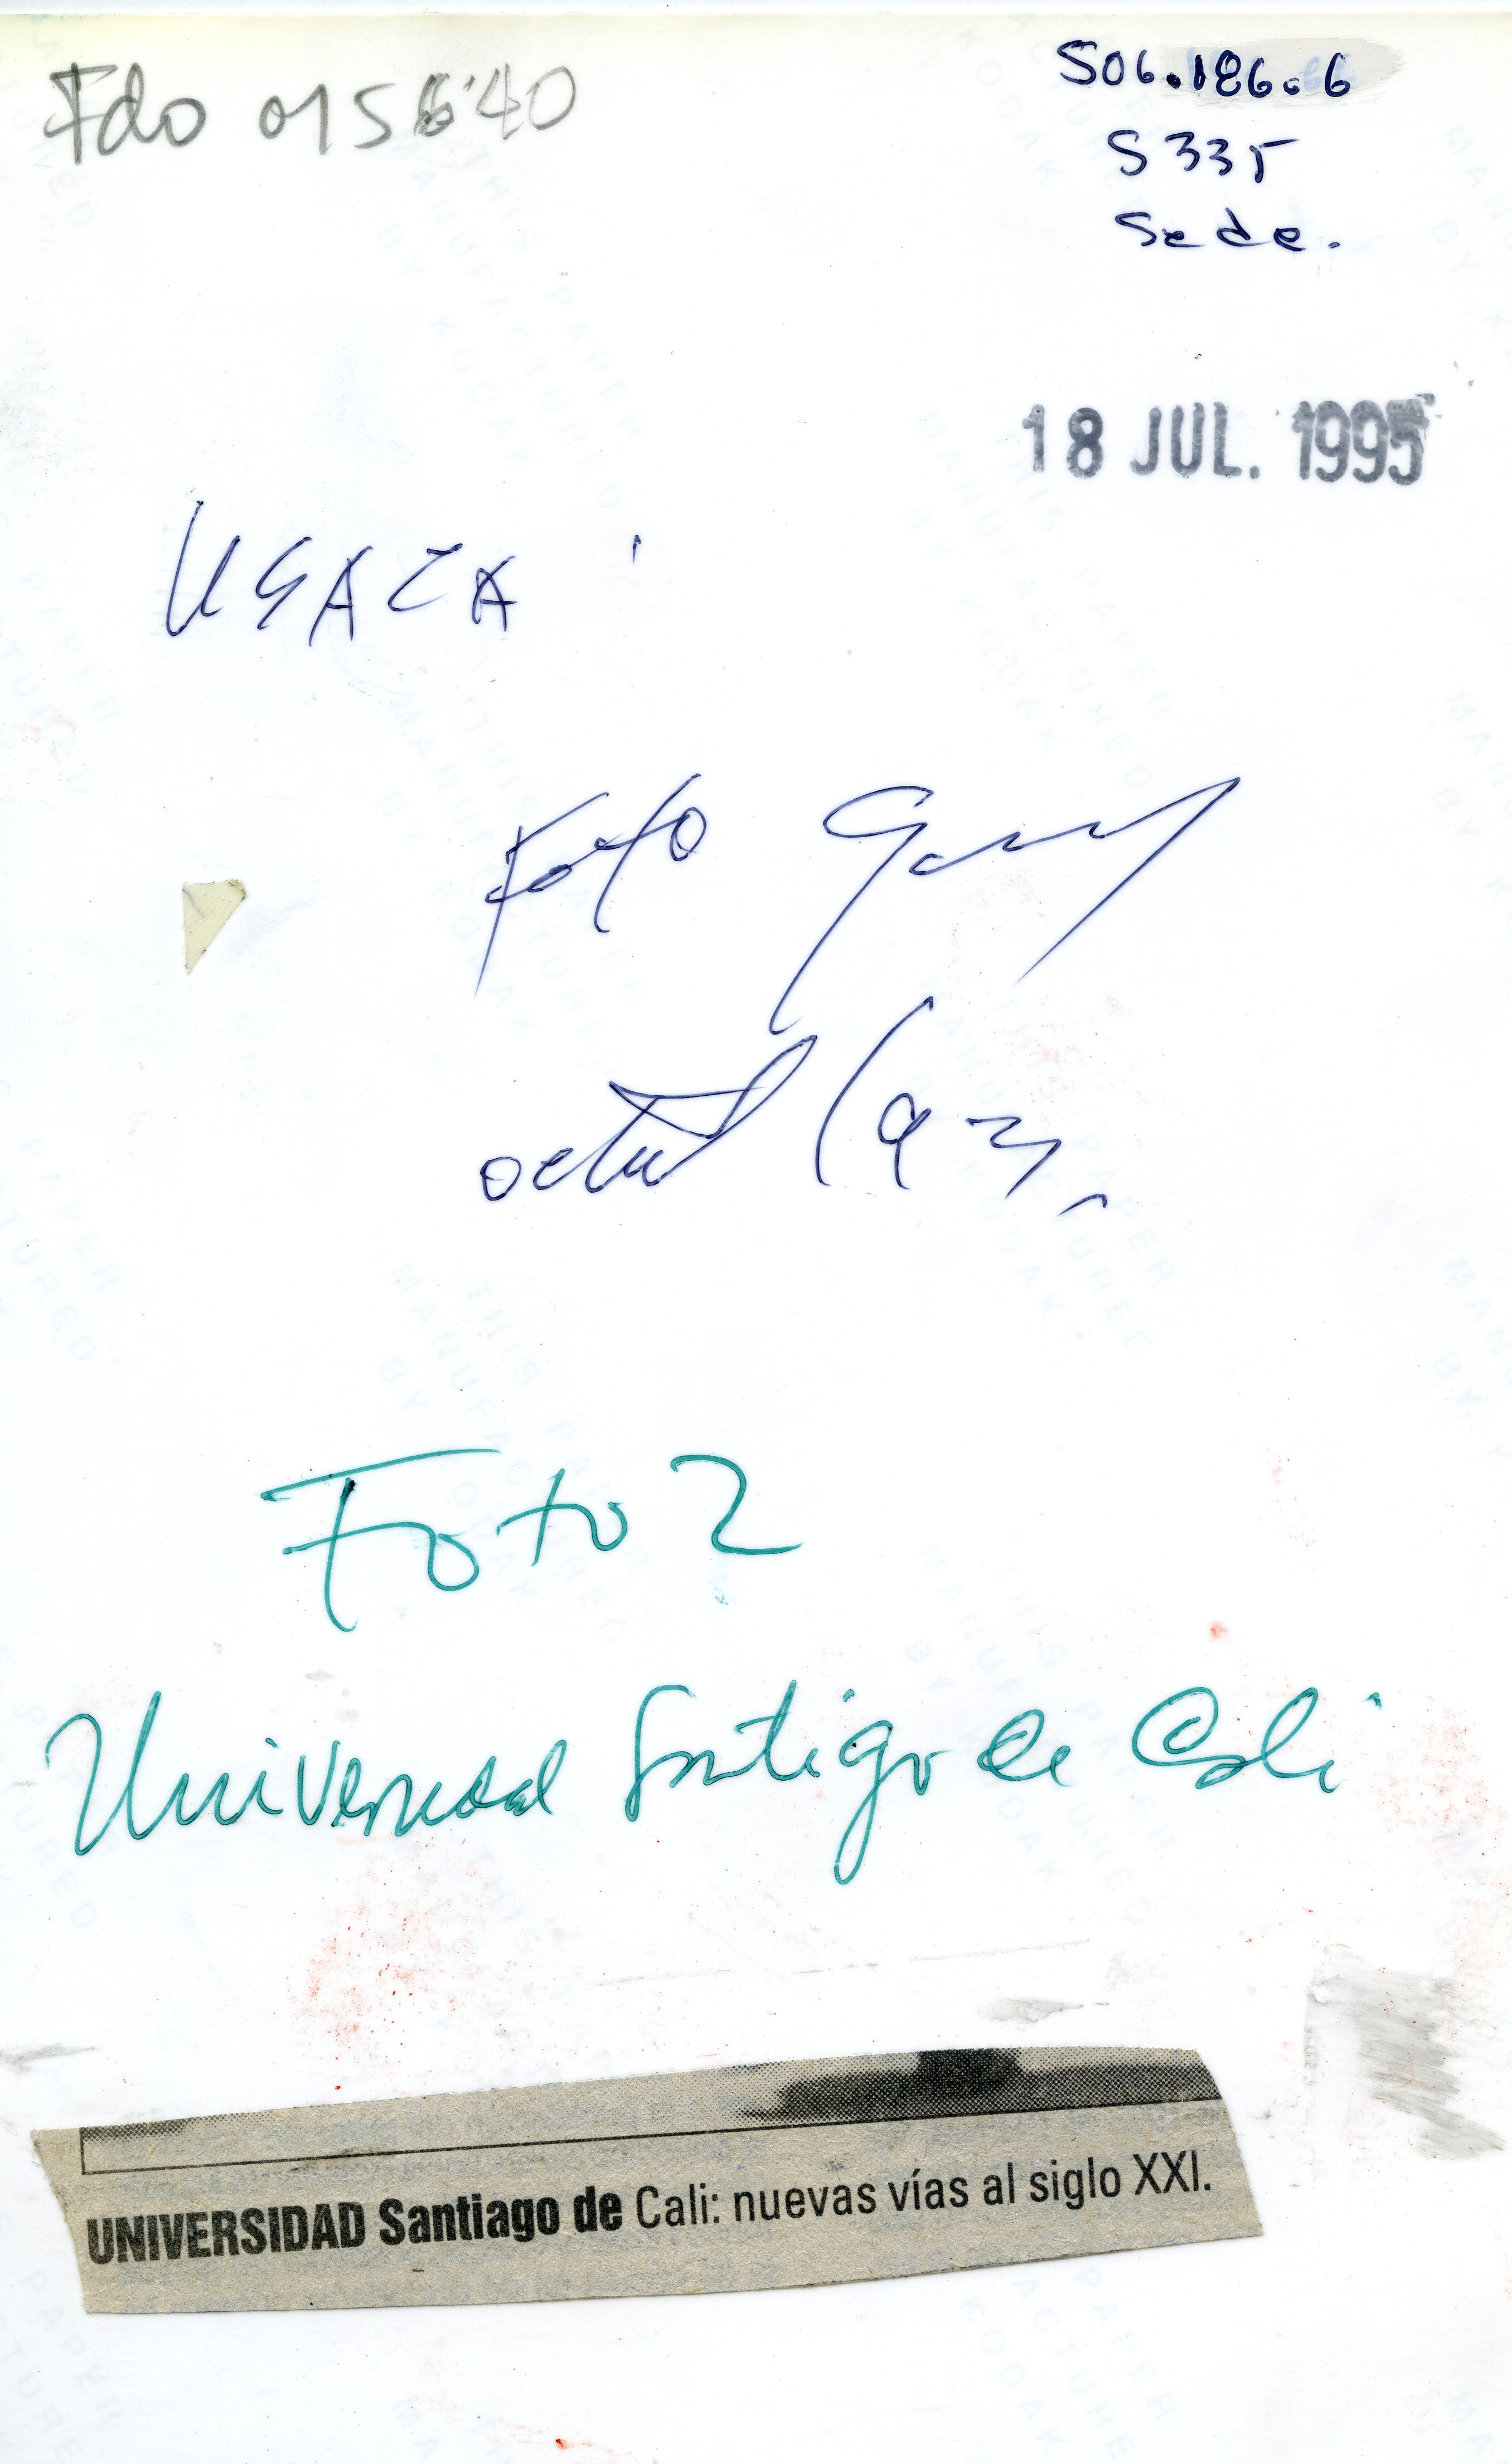 Fdo 015640
S06.186.6
S335
Sede.
18 JUL. 1995
USACA
Foto
Foto 2
Universidad Santiago de Cali
UNIVERSIDAD Santiago de Cali: nuevas vías al siglo XXI.
THIS PAPER
MANUFACTURED
BY KODAK